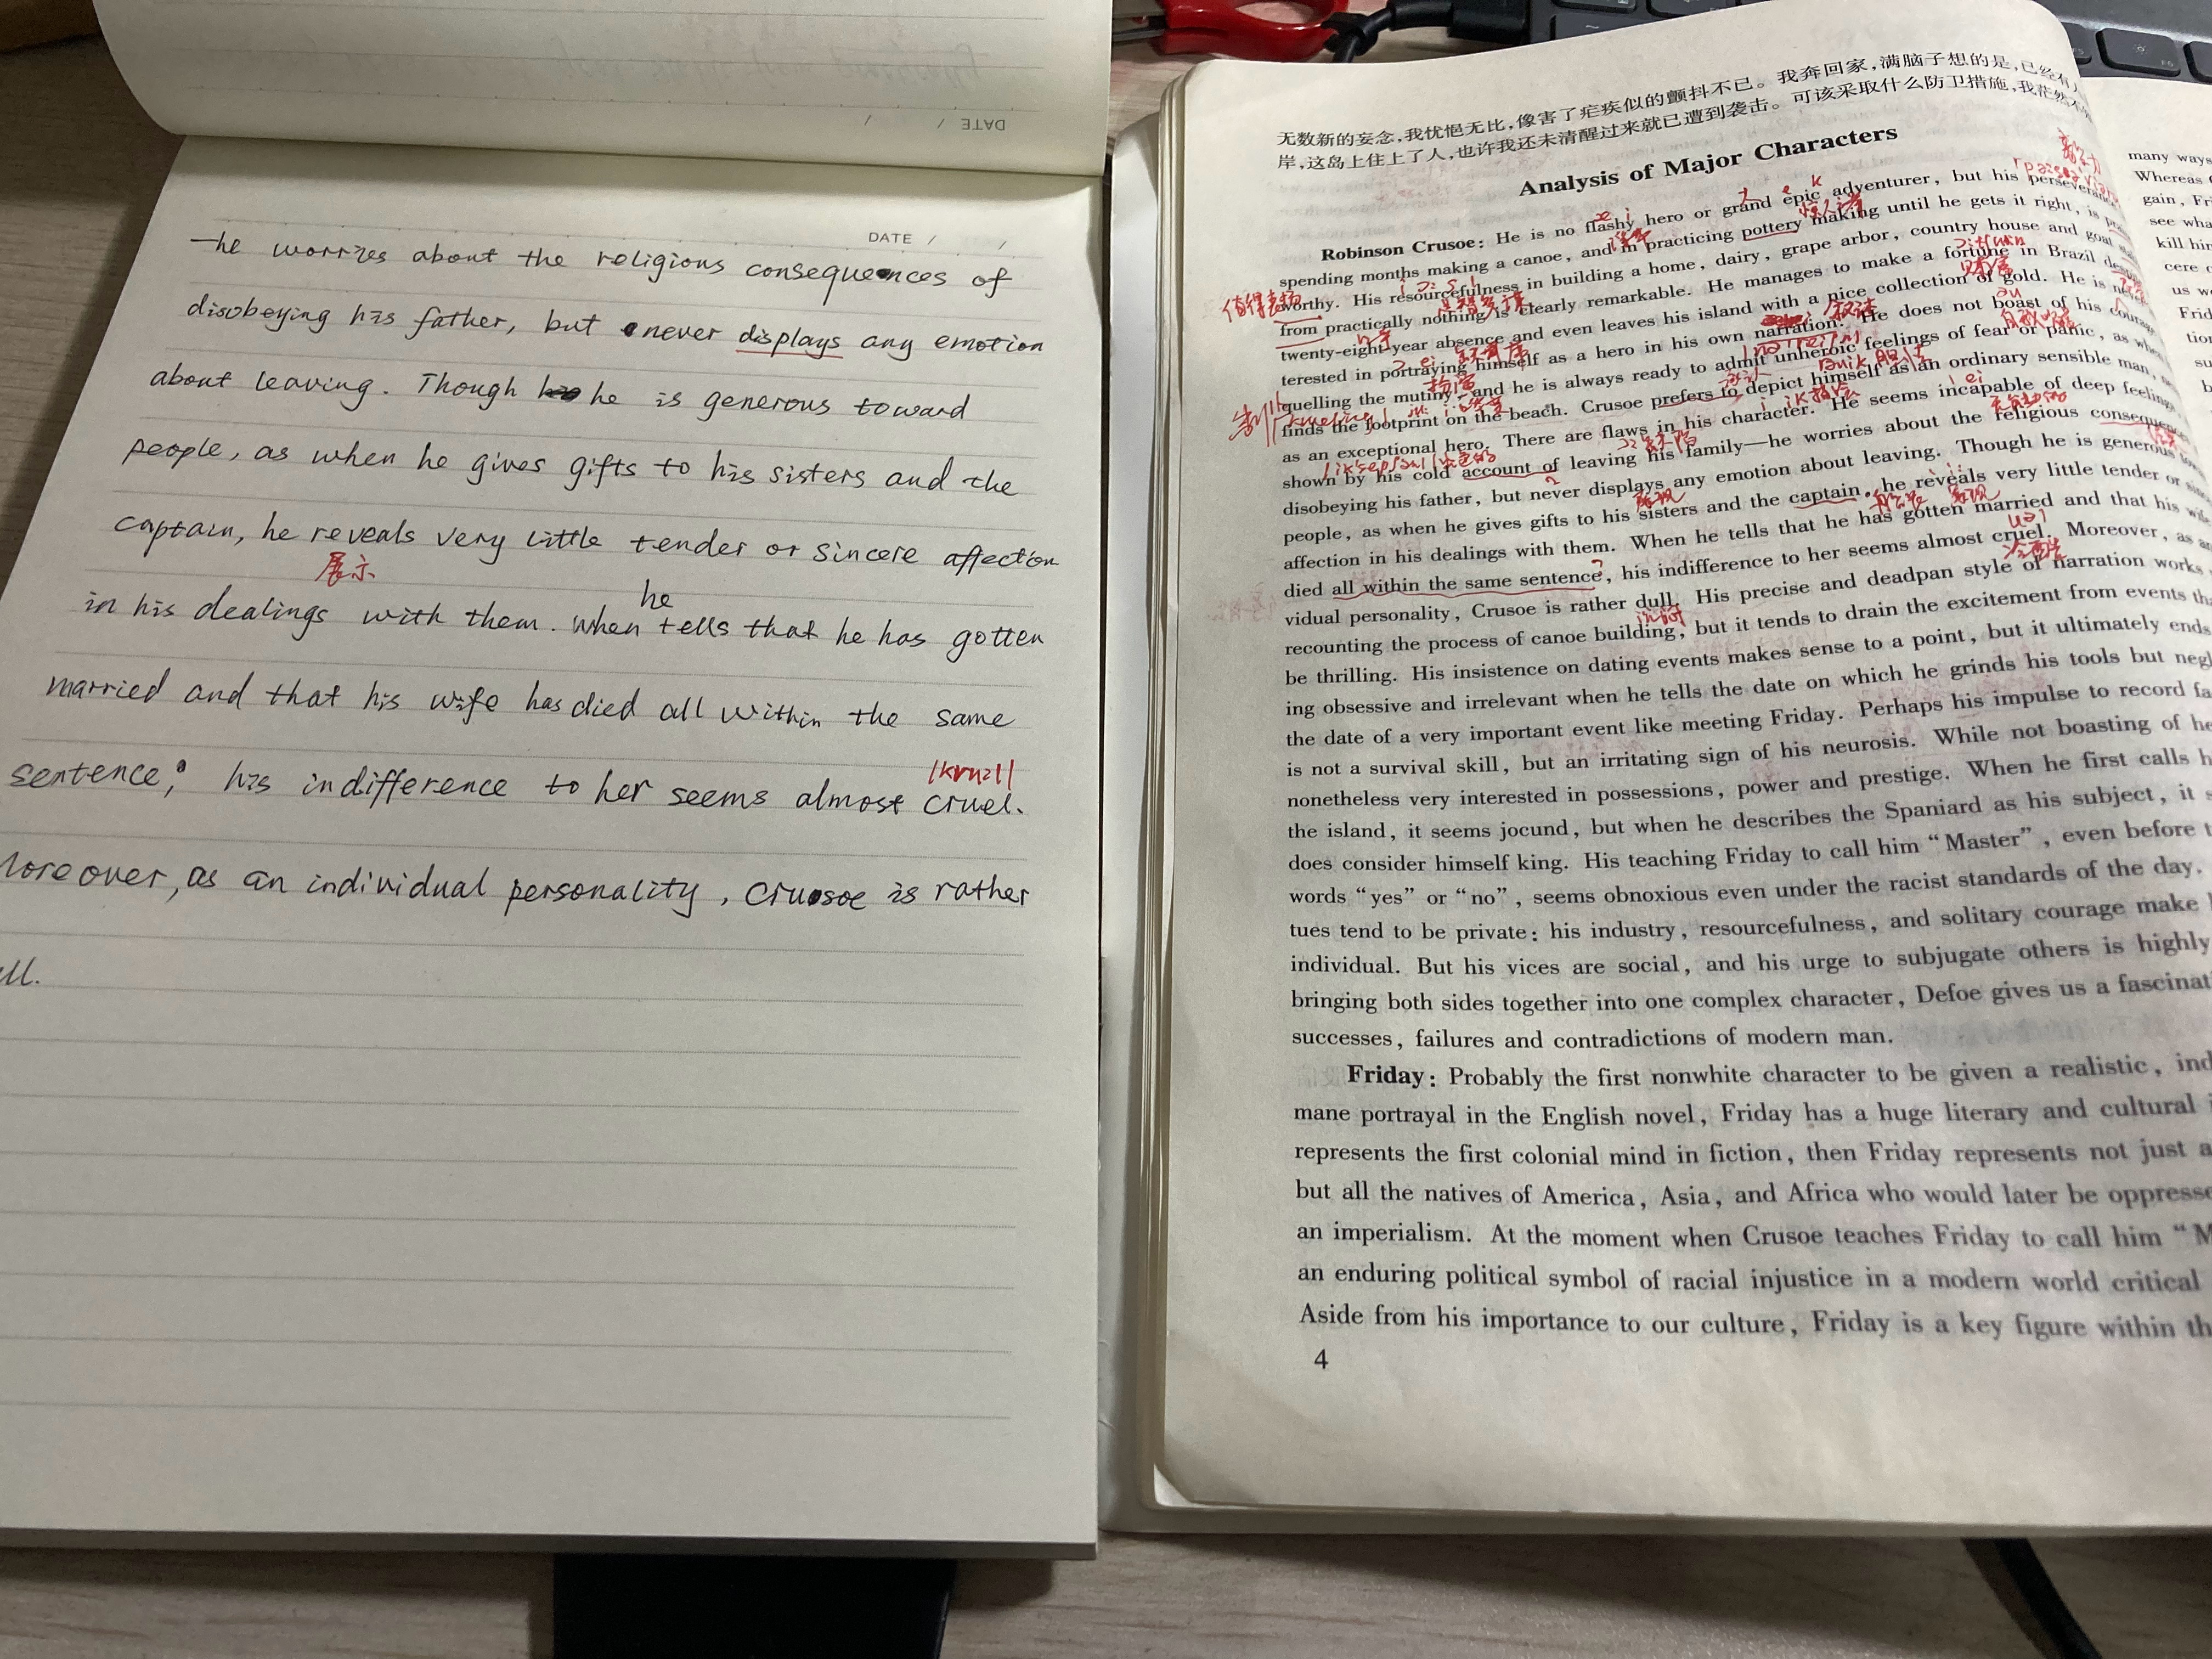 DATE / /
—he worries about the religious consequences of
disobeying his father, but never displays any emotion
about leaving. Though he is generous toward
people, as when he gives gifts to his sisters and the
captain, he reveals very little tender or sincere affection
展示
he
in his dealings with them. When tells that he has gotten
married and that his wife has died all within the same
sentence, his indifference to her seems almost cruel.
Moreover, as an individual personality, Crusoe is rather
ull.
DATE / /
无数新的妄念,我忧悒无比,像害了疟疾似的颤抖不已。我奔回家,满脑子想的是,已经有
岸,这岛上住上了人,也许我还未清醒过来就已遭到袭击。可该采取什么防卫措施,我茫然不
Analysis of Major Characters
Robinson Crusoe: He is no flashy hero or grand epic adventurer, but his
spending months making a canoe, and in practicing pottery making until he gets it right, is
worthy. His resourcefulness in building a home, dairy, grape arbor, country house and goat
from practically nothing is clearly remarkable. He manages to make a fortune in Brazil
twenty-eight-year absence and even leaves his island with a nice collection of gold. He is
terested in portraying himself as a hero in his own narration. He does not boast of his
quelling the mutiny, and he is always ready to admit unheroic feelings of fear or panic, as
finds the footprint on the beach. Crusoe prefers to depict himself as an ordinary sensible man,
as an exceptional hero. There are flaws in his character. He seems incapable of deep
shown by his cold account of leaving his family—he worries about the religious
disobeying his father, but never displays any emotion about leaving. Though he is generous
people, as when he gives gifts to his sisters and the captain, he reveals very little tender or
affection in his dealings with them. When he tells that he has gotten married and that his
died all within the same sentence, his indifference to her seems almost cruel. Moreover, as
vidual personality, Crusoe is rather dull. His precise and deadpan style of narration works
recounting the process of canoe building, but it tends to drain the excitement from events
be thrilling. His insistence on dating events makes sense to a point, but it ultimately ends
ing obsessive and irrelevant when he tells the date on which he grinds his tools but
the date of a very important event like meeting Friday. Perhaps his impulse to record
is not a survival skill, but an irritating sign of his neurosis. While not boasting of
nonetheless very interested in possessions, power and prestige. When he first calls
the island, it seems jocund, but when he describes the Spaniard as his subject, it
does consider himself king. His teaching Friday to call him “Master”, even before
words “yes” or “no”, seems obnoxious even under the racist standards of the day.
tues tend to be private: his industry, resourcefulness, and solitary courage make
individual. But his vices are social, and his urge to subjugate others is highly
bringing both sides together into one complex character, Defoe gives us a
successes, failures and contradictions of modern man.
Friday: Probably the first nonwhite character to be given a realistic,
mane portrayal in the English novel, Friday has a huge literary and cultural
represents the first colonial mind in fiction, then Friday represents not just
but all the natives of America, Asia, and Africa who would later be
an imperialism. At the moment when Crusoe teaches Friday to call him
an enduring political symbol of racial injustice in a modern world critical
Aside from his importance to our culture, Friday is a key figure within
4
many ways
Whereas
gain, Fr
see wha
kill him
cere
us w
Frid
tion